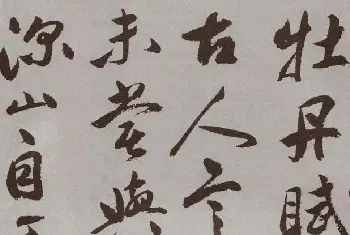 牡丹賦
古人言
未嘗與
深山自